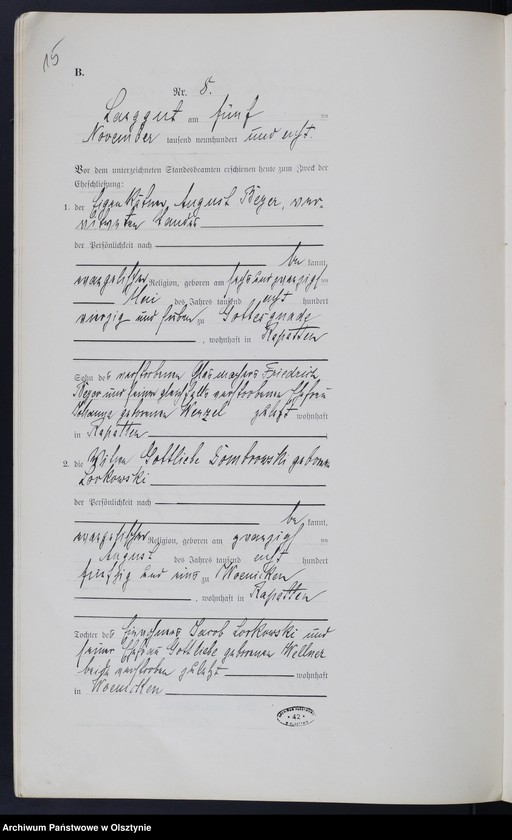 15
B.
Nr. 8.
Langgut am fünf ten
November tausend neunhundert und acht.
Vor dem unterzeichneten Standesbeamten erschienen heute zum Zweck der
Eheschließung:
1. der Eigenkätner August Beyer, ver-
witweten Standes
der Persönlichkeit nach
be kannt,
evangelischer Religion, geboren am sechsundzwanzigs ten
Mai des Jahres tausend acht hundert
vierzig und sieben zu Gottesgnade
, wohnhaft in Rapatten
Sohn des verstorbenen Friedrich
Beyer und seiner gleichfalls verstorbenen Ehefrau
geborenen Wenzel zuletzt wohnhaft
in Rapatten
2. die Witwe Gottliebe Dombrowski geborene
Lorkowski
der Persönlichkeit nach
be kannt,
evangelischer Religion, geboren am zwanzigs ten
August des Jahres tausend acht hundert
fünfzig und eins zu Woenicken
, wohnhaft in Rapatten
Tochter des Jacob Lorkowski und
seiner Ehefrau Gottliebe geborenen Wellner
beide verstorben zuletzt wohnhaft
in Woenicken
42
Archiwum Państwowe w Olsztynie